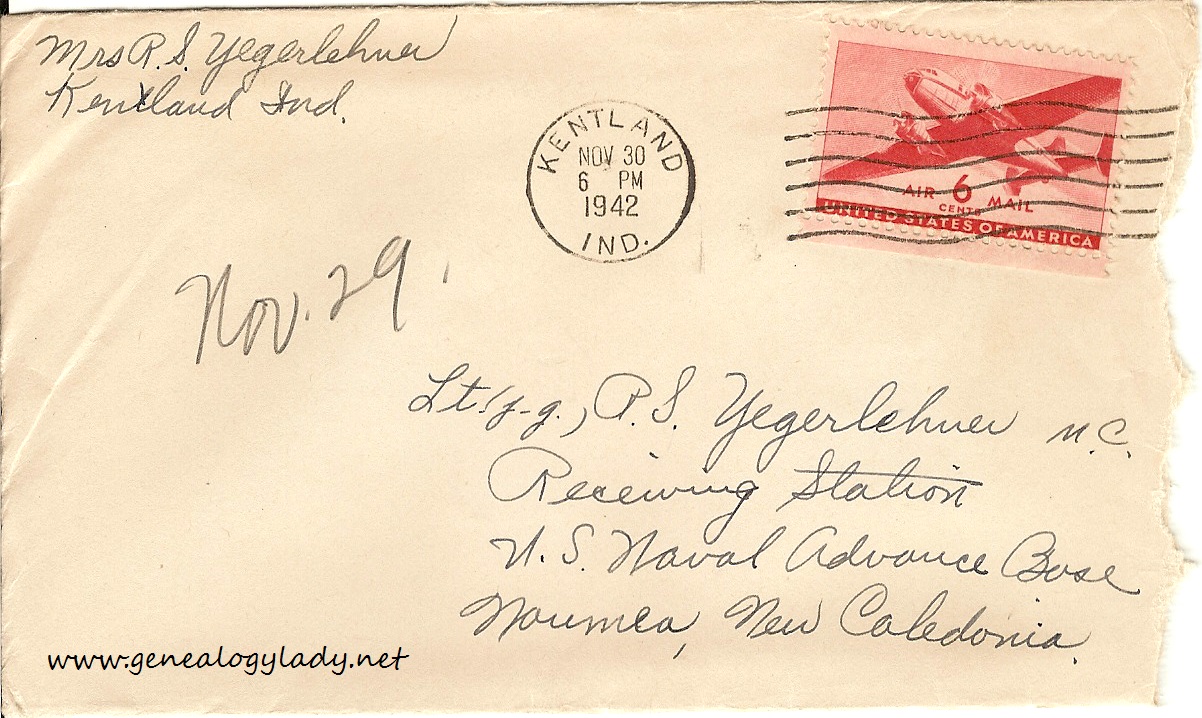 Mrs R. S. Yegerlehner
Kentland Ind.
KENTLAND
NOV 30
6 PM
1942
IND.
AIR 6 MAIL
CENTS
UNITED STATES OF AMERICA
Nov. 29.
Lt. (j-g.), R. S. Yegerlehner M.C.
Receiving Station
U. S. Naval Advance Base
Noumea, New Caledonia.
www.genealogylady.net